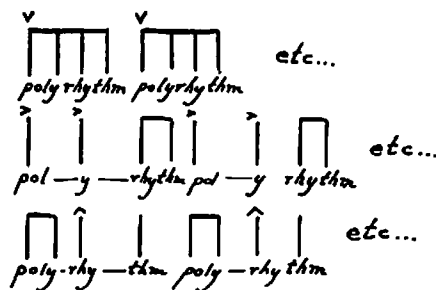 etc...
polyrhythm polyrhythm
etc...
pol—y—rhythm pol—y rhythm
etc...
poly-rhy—thm poly—rhy thm